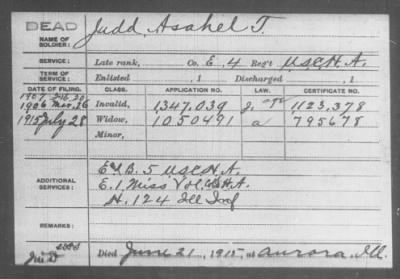 DEAD
NAME OF SOLDIER: Judd, Asahel T.
SERVICE: Late rank, Co. E. 4 Reg't U.S.C.H.A.
TERM OF SERVICE: Enlisted , 1 Discharged , 1
DATE OF FILING. CLASS. APPLICATION NO. LAW. CERTIFICATE NO.
1907 Feb. 20
1906 Mar. 26 Invalid, 1,347,039 1,123,378
1915 July 28 Widow, 1050491 a 795678
Minor,
ADDITIONAL SERVICES:
E & B. 5 U.S.C.H.A.
E. 1, Miss Vol. H.A.
H. 124 Ill Inf
REMARKS:
Died June 21, 1915, at Aurora, Ill.